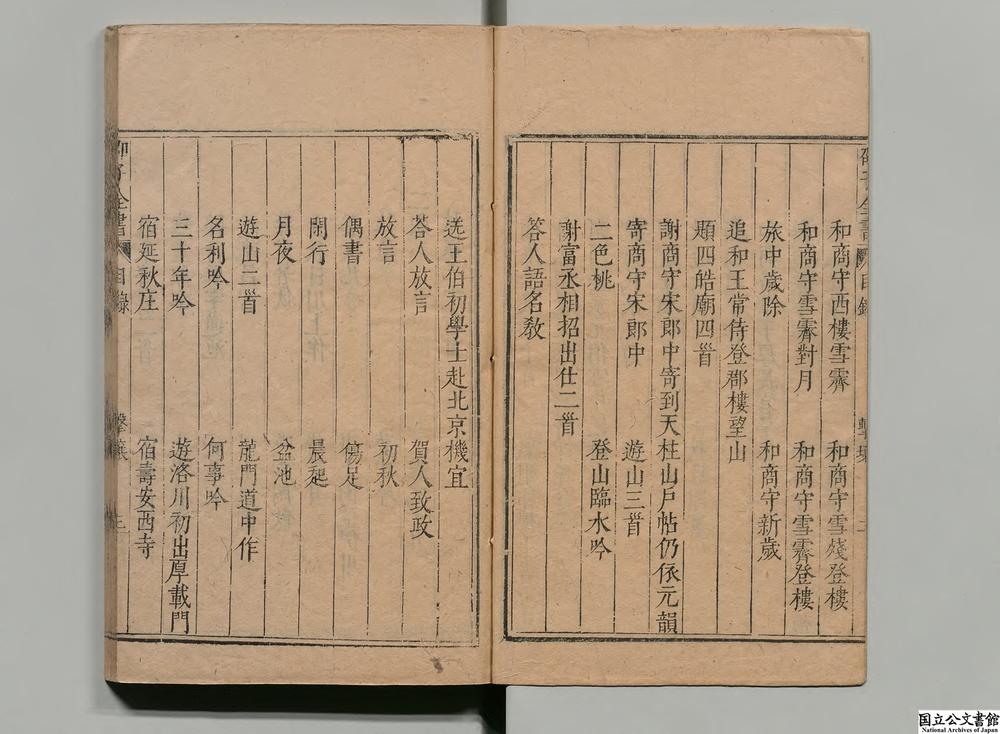 和商守西樓雪霽 和商守雪殘登樓
和商守雪霽對月 和商守雪霽登樓
旅中歲除 和商守新歲
追和王常侍登郡樓望山
題四皓廟四首
謝商守宋郎中寄到天柱山戸帖仍依元韻
寄商守宋郎中 遊山三首
二色桃 登山臨水吟
謝富丞相招出仕二首
答人語名教
送王伯初學士赴北京機宜
答人放言 賀人致政
放言 初秋
偶書 傷足
閑行 晨起
月夜 盆池
遊山二首 龍門道中作
名利吟 何事吟
三十年吟 遊洛川初出厚載門
宿延秋庄 宿壽安西寺
邵子全書 目錄 擊壤 三
国立公文書館
National Archives of Japan